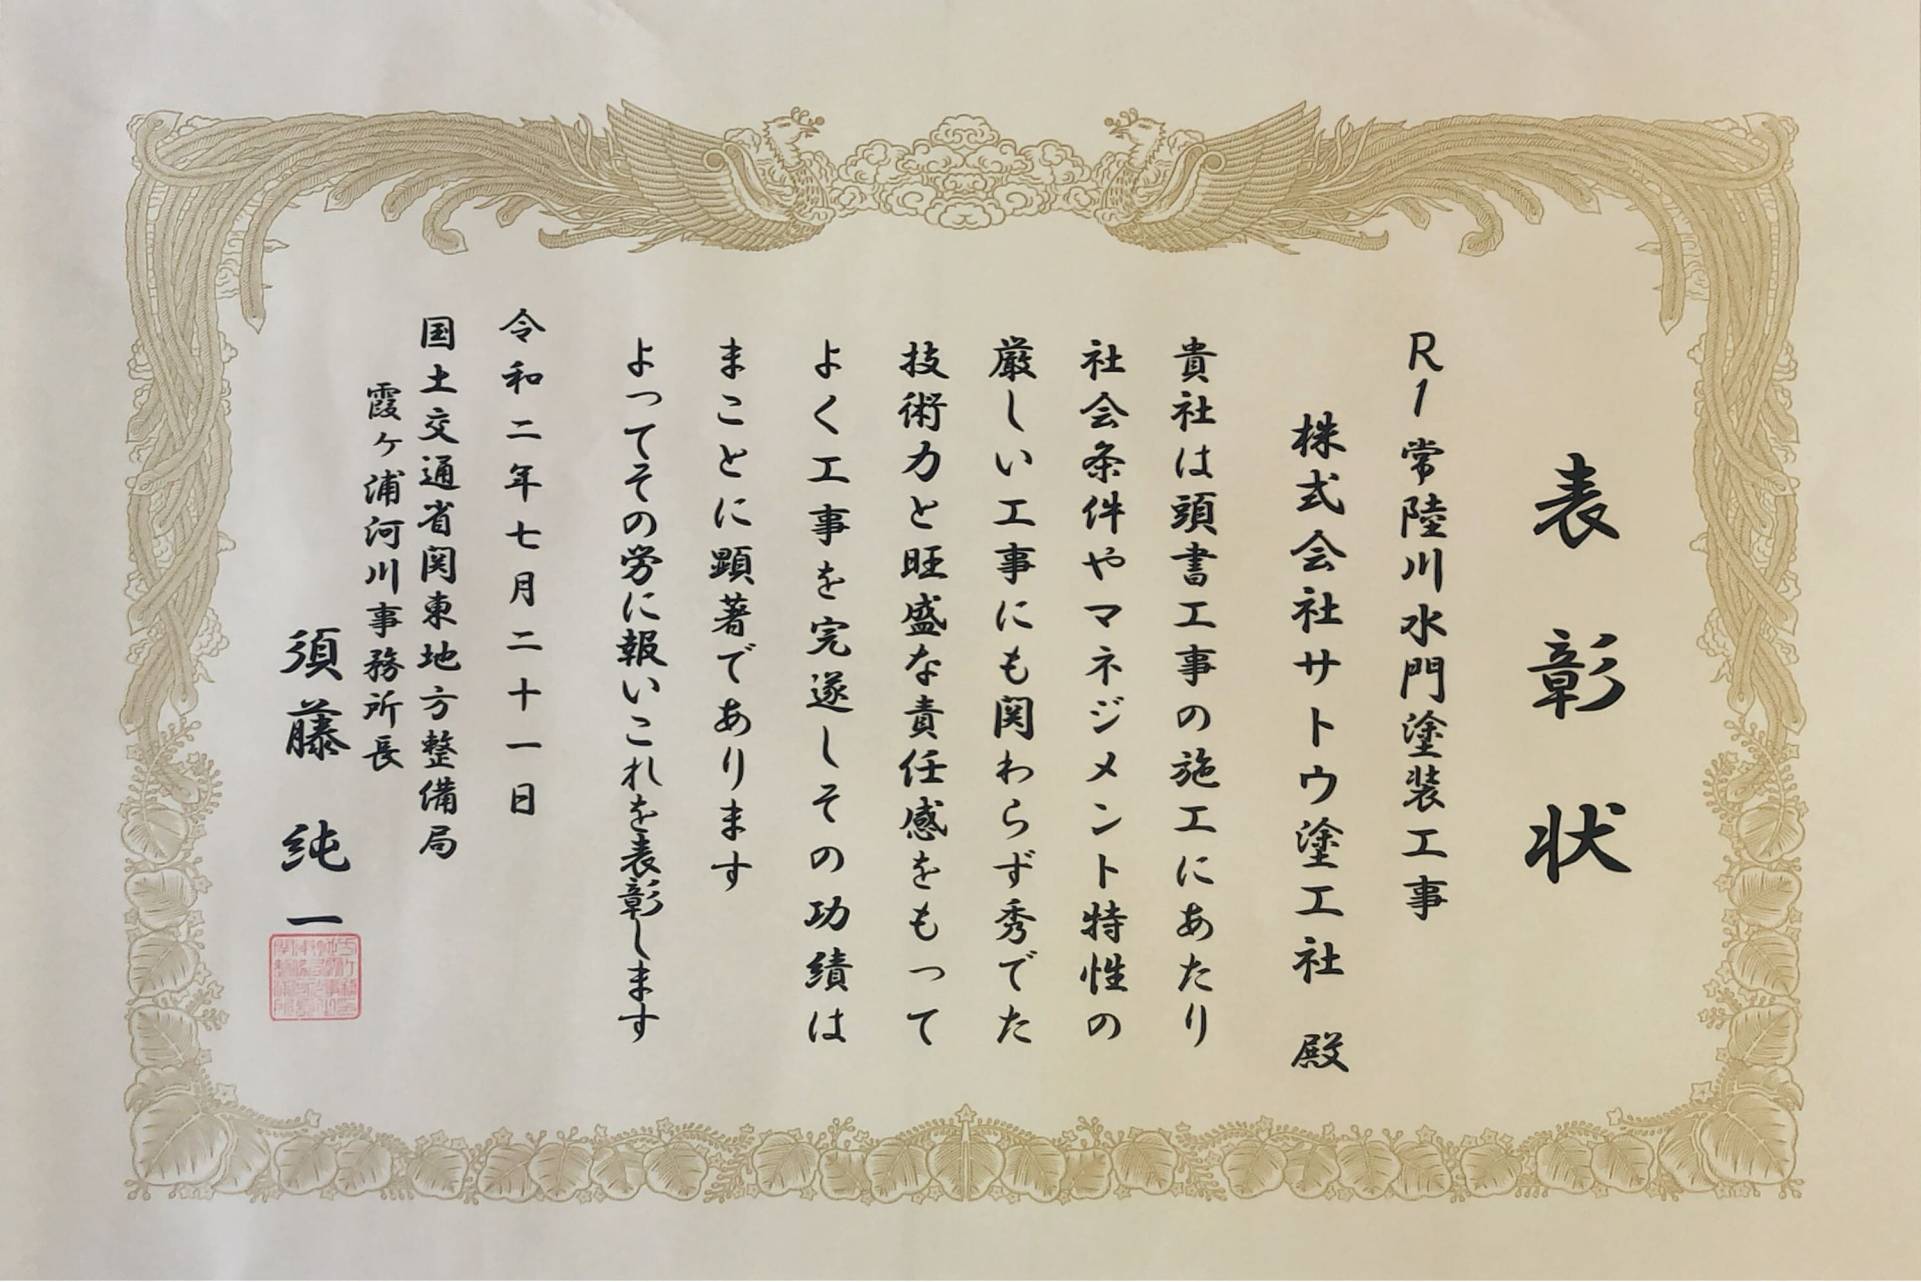 表彰状
R1常陸川水門塗装工事
株式会社サトウ塗工社 殿
貴社は頭書工事の施工にあたり
社会条件やマネジメント特性の
厳しい工事にも関わらず秀でた
技術力と旺盛な責任感をもって
よく工事を完遂しその功績は
まことに顕著であります
よってその労に報いこれを表彰します
令和二年七月二十一日
国土交通省関東地方整備局
霞ヶ浦河川事務所長
須藤 純一